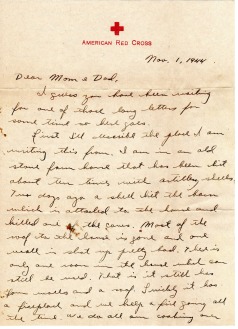 AMERICAN RED CROSS
Nov. 1, 1944
Dear Mom & Dad,
I guess you have been waiting
for one of those long letters for
some time so here goes.
First I'll describe the place I am
writing this from. I am in an old
stone farm house that has been hit
about ten times with artillery shells.
Two days ago a shell hit the barn
which is attached to the house and
killed all the cows. Most of the
roof to the house is gone and one
wall is shot up pretty bad. There is
only one room in the house which can
still be used. That is it still has
four walls and a roof. Luckily it has
a fireplace and we keep a fire going all
the time. We do all our cooking over